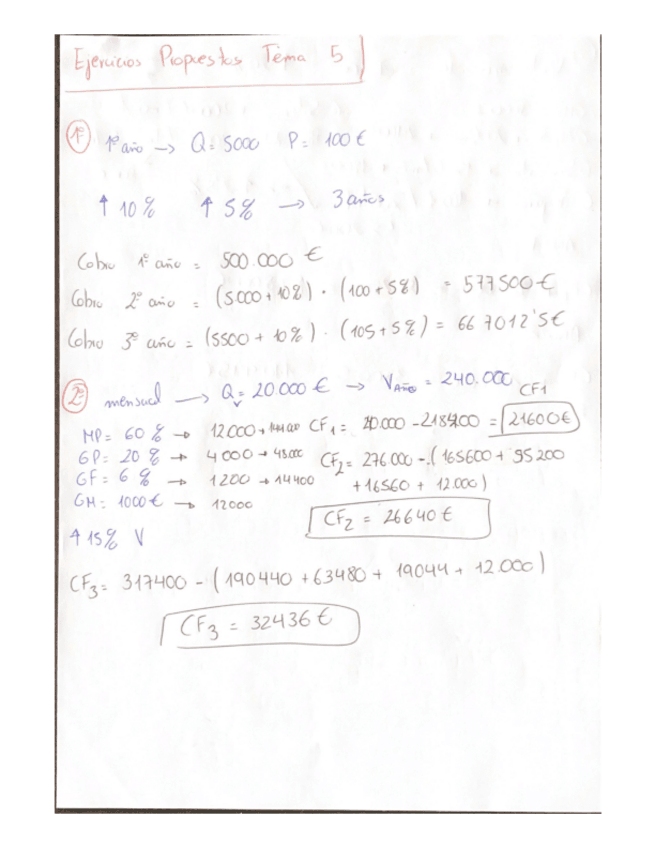 Ejercicios Propuestos Tema 5
1º 1º año → Q = 5000 P = 100 €
↑ 10% ↑ 5% → 3 años
Cobro 1º año = 500.000 €
Cobro 2º año = (5000 + 10%) · (100 + 5%) = 577500 €
Cobro 3º año = (5500 + 10%) · (105 + 5%) = 667012'5 €
2º mensual → Qv = 20.000 € → VAño = 240.000
CF1
MP = 60% → 12000 → CF1 = - = 21600 €
GP = 20% → 4000 → 48000 CF2 = 276.000 - (165600 + 55200
GF = 6% → 1200 → 14400 + 16560 + 12.000)
GM = 1000 € → 12000
CF2 = 26640 €
↑ 15% V
CF3 = 317400 - (190440 + 63480 + 19044 + 12.000)
CF3 = 32436 €